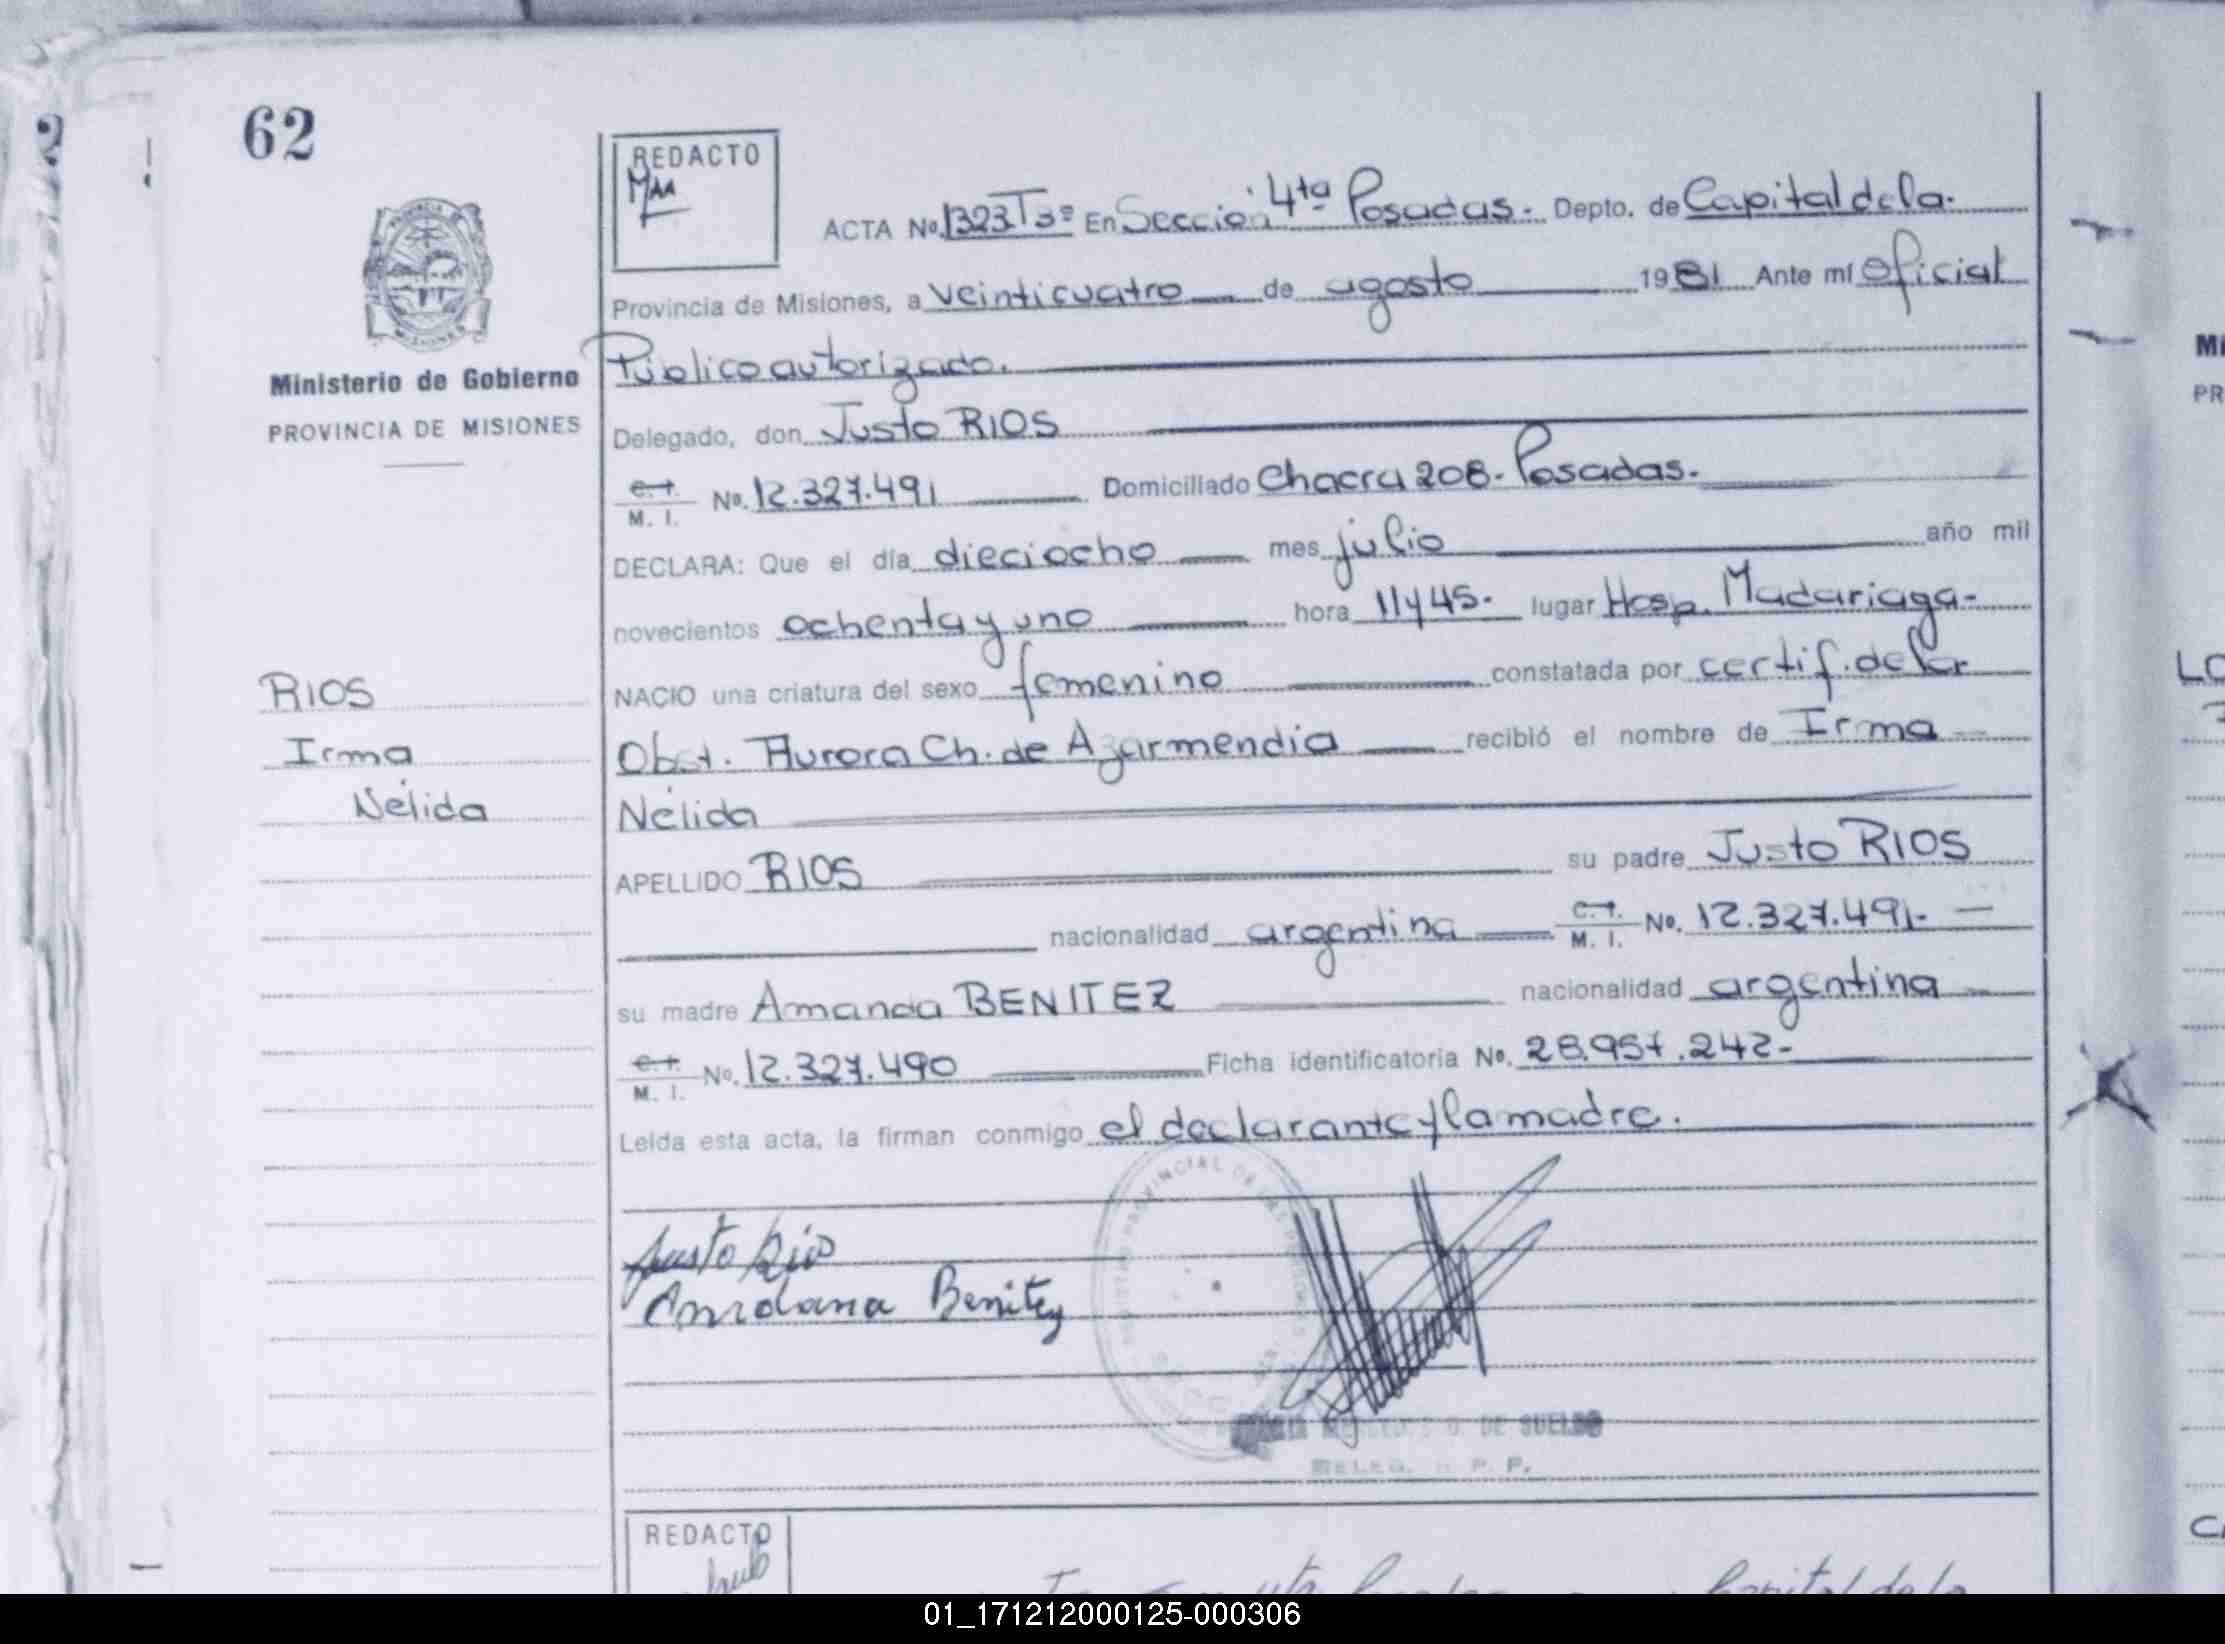 62
REDACTO
ACTA No. 1323 T 3º En Sección 4ta Posadas. Depto. de Capital de la.
Provincia de Misiones, a veinticuatro de agosto 1981 Ante mí oficial
Público autorizado.
Ministerio de Gobierno
PROVINCIA DE MISIONES
Delegado, don Justo RIOS
C.I. M. I. No. 12.327.491 Domiciliado Chacra 208. Posadas.
DECLARA: Que el día dieciocho mes julio año mil
novecientos ochenta y uno hora 11 y 45. lugar Hosp. Madariaga-
RIOS
Irma
Nélida
NACIO una criatura del sexo femenino constatada por certif. de la
Obst. Aurora Ch. de Azarmendia recibió el nombre de Irma
Nélida
APELLIDO RIOS su padre Justo RIOS
nacionalidad argentina C.I. M. I. No. 12.327.491-
su madre Amanda BENITEZ nacionalidad argentina
C.I. M. I. No. 12.327.490 Ficha identificatoria No. 28.957.242-
Leída esta acta, la firman conmigo el declarante y la madre.
Justo Rios
Benitez
DE SUELDO
DELEG. R. P. P.
REDACTO
01_171212000125-000306